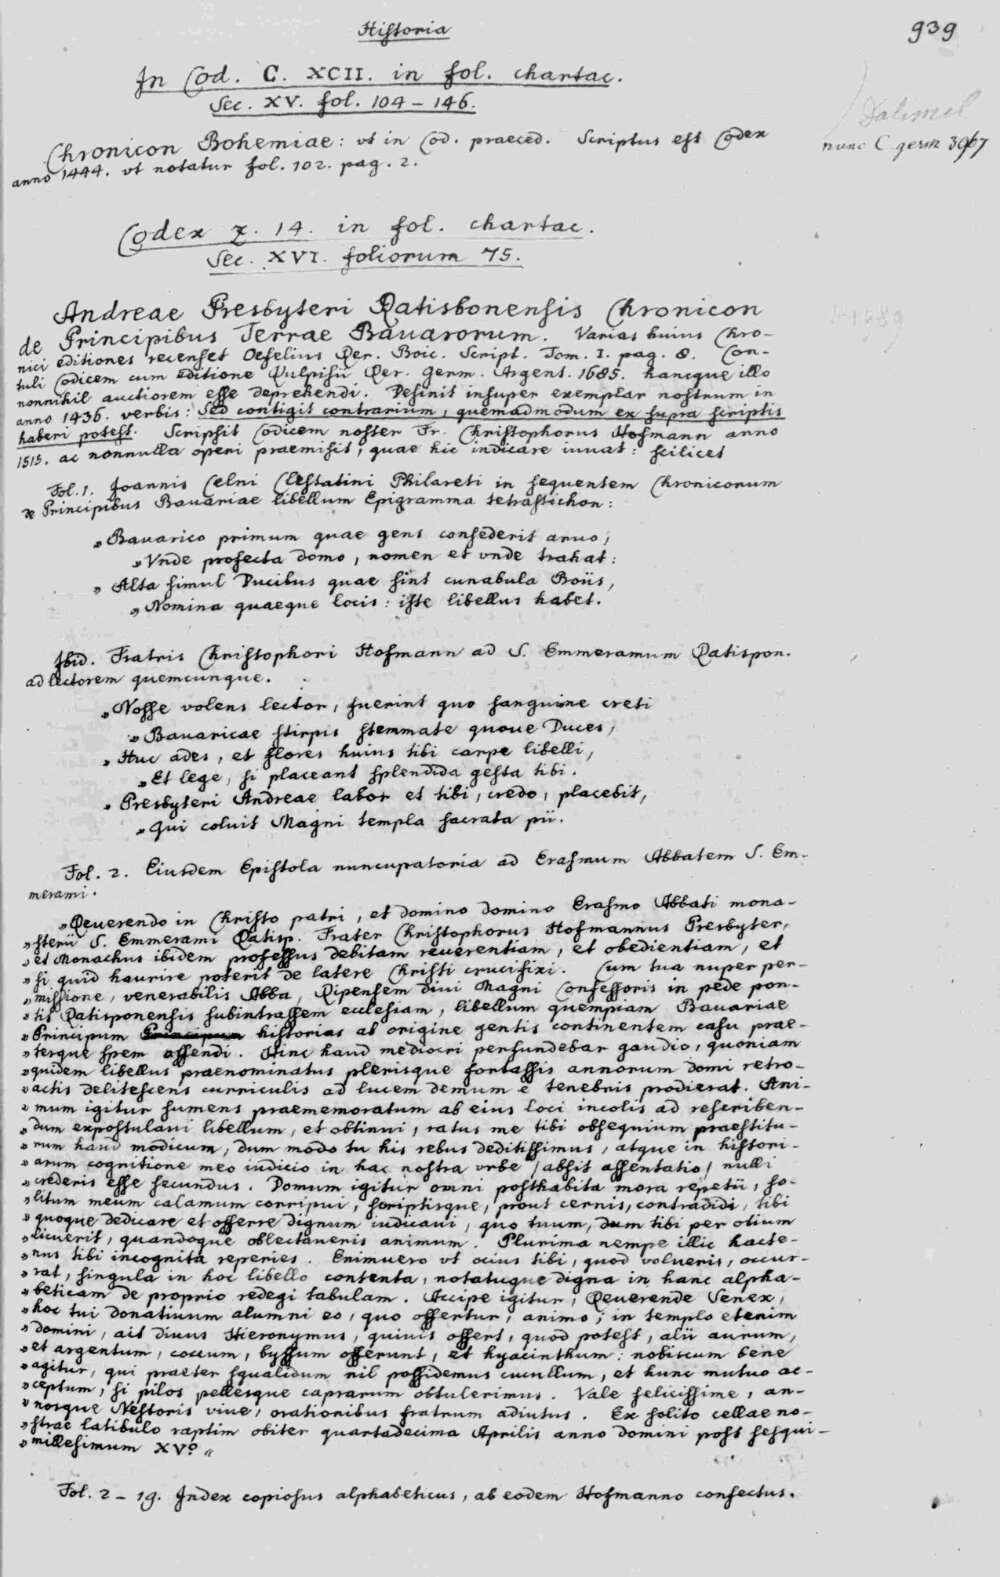 Historia
939
In Cod. C. XCII. in fol. chartac.
Sec. XV. fol. 104 - 146.
Dalimil
nunc C. germ 3967
Chronicon Bohemiae: vt in Cod. praeced. Scriptus est Codex
anno 1444. vt notatur fol. 102. pag. 2.
Codex z. 14. in fol. chartac.
Sec. XVI. foliorum 75.
Andreae Presbyteri Ratisbonensis Chronicon
de Principibus Terrae Bavarorum. Varias huius Chro-
nici editiones recenset Oefelius Rer. Boic. Script. Tom. I. pag. 8. Con-
tuli Codicem cum editione Kulpisii Rer. Germ. Argent. 1685. hancque illo
nonnihil auctiorem esse deprehendi. Desinit insuper exemplar nostrum in
anno 1436. verbis: Sed contigit contrarium, quemadmodum ex supra scriptis
haberi potest. Scripsit Codicem noster Fr. Christophorus Hofmann anno
1515. ac nonnulla operi praemisit, quae hic indicare iuuat: scilicet
Fol. 1. Joannis Celni Clestatini Philareti in sequentem Chroniconum
de Principibus Bauariae libellum Epigramma tetrastichon:
„Bauarico primum quae gens consederit aruo,
„Vnde profecta domo, nomen et vnde trahat:
„Alta simul Ducibus quae sint cunabula Boiis,
„Nomina quaeque locis: iste libellus habet.
Ibid. Fratris Christophori Hofmann ad S. Emmeramum Ratispon.
ad lectorem quemcunque.
„Nosse volens lector, fuerint quo sanguine creti
„Bauaricae stirpis stemmate quoue Duces,
„Huc ades, et flores huius tibi carpe libelli,
„Et lege, si placeant splendida gesta tibi.
„Presbyteri Andreae labor et tibi, credo, placebit,
„Qui coluit Magni templa sacrata pii.
Fol. 2. Eiusdem Epistola nuncupatoria ad Erasmum Abbatem S. Em-
merami.
„Reuerendo in Christo patri, et domino domino Erasmo Abbati mona-
„sterii S. Emmerami Ratisp. Frater Christophorus Hofmannus Presbyter,
„et Monachus ibidem professus debitam reuerentiam, et obedientiam, et
„si quid haurire poterit de latere Christi crucifixi. Cum tua nuper per-
„missione, venerabilis Abba, Ripensem diui Magni Confessoris in pede pon-
„tis Ratisponensis subintrassem ecclesiam, libellum quempiam Bauariae
„Principum Principum historias ab origine gentis continentem casu prae-
„terque spem offendi. Hinc haud mediocri perfundebar gaudio, quoniam
„quidem libellus praenominatus plerisque fortassis annorum domi retro-
„actis delitescens curriculis ad lucem demum e tenebris prodierat. Ani-
„mum igitur sumens praememoratum ab eius loci incolis ad rescriben-
„dum expostulaui libellum, et obtinui, ratus me tibi obsequium praestitu-
„rum haud modicum, dum modo tu his rebus deditissimus, atque in histori-
„arum cognitione meo iudicio in hac nostra vrbe /absit assentatio/ nulli
„crederis esse secundus. Domum igitur omni posthabita mora repetii, so-
„litum meum calamum corripui, scriptisque, prout cernis, contradidi, tibi
„quoque dedicare et offerre dignum iudicaui, quo tuum, dum tibi per otium
„licuerit, quandoque oblectaueris animum. Plurima nempe illic hacte-
„nus tibi incognita reperies. Enimuero vt ocius tibi, quod volueris, occur-
„rat, singula in hoc libello contenta, notatuque digna in hanc alpha-
„beticam de proprio redegi tabulam. Accipe igitur, Reuerende Senex,
„hoc tui donatiuum alumni eo, quo offertur, animo; in templo etenim
„domini, ait diuus Hieronymus, quiuis offert, quod potest, alii aurum,
„et argentum, coccum, byssum offerunt, et hyacinthum: nobiscum bene
„agitur, qui praeter squalidum nil possidemus cucullum, et hunc mutuo ac-
„ceptum, si pilos pellesque caprarum obtulerimus. Vale felicissime, an-
„nosque Nestoris viue, orationibus fratrum adiutus. Ex solito cellae no-
„strae latibulo raptim obiter quartadecima Aprilis anno domini post sesqui-
„millesimum XVo „
Fol. 2 - 19. Index copiosus alphabeticus, ab eodem Hofmanno confectus.